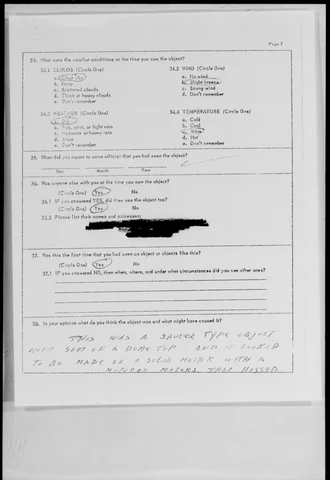 Page 7
34. What were the weather conditions at the time you saw the object?
34.1 CLOUDS (Circle One)
34.2 WIND (Circle One)
a. Clear sky
b. Hazy
c. Scattered clouds
d. Thick or heavy clouds
e. Don't remember
a. No wind
b. Slight breeze
c. Strong wind
d. Don't remember
34.3 WEATHER (Circle One)
34.4 TEMPERATURE (Circle One)
a. Dry
b. Fog, mist, or light rain
c. Moderate or heavy rain
d. Snow
e. Don't remember
a. Cold
b. Cool
c. Warm
d. Hot
e. Don't remember
35. When did you report to some official that you had seen the object?
Day Month Year
36. Was anyone else with you at the time you saw the object?
(Circle One) Yes No
36.1 IF you answered YES, did they see the object too?
(Circle One) Yes No
36.2 Please list their names and addresses:
37. Was this the first time that you had seen an object or objects like this?
(Circle One) Yes No
37.1 IF you answered NO, then when, where, and under what circumstances did you see other ones?
38. In your opinion what do you think the object was and what might have caused it?
THIS WAS A SAUCER TYPE OBJECT
WITH SORT OF A DOME TOP. AND IT LOOKED
TO BE MADE OF A SOLID WITH A
MOTORS THAT HISSED